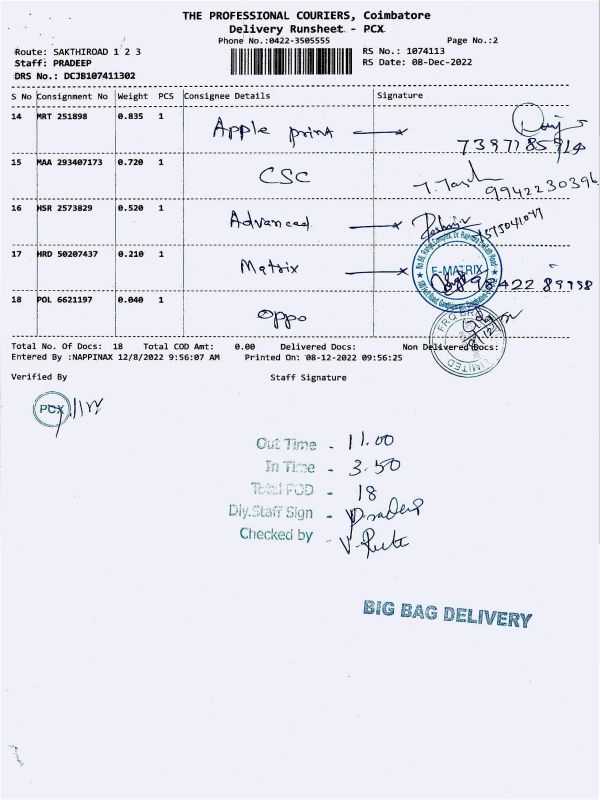 THE PROFESSIONAL COURIERS, Coimbatore
Delivery Runsheet - PCX
Phone No.:0422-3505555 Page No.:2
Route: SAKTHIROAD 1 2 3 RS No.: 1074113
Staff: PRADEEP RS Date: 08-Dec-2022
DRS No.: DCJB107411302
S No Consignment No Weight PCS Consignee Details Signature
14 MRT 251898 0.835 1 Apple print
15 MAA 293407173 0.720 1 CSC 9942230396
16 HSR 2573829 0.520 1 Advanced
17 HRD 50207437 0.210 1 Matrix E-MATRIX
18 POL 6621197 0.040 1 oppo
Total No. Of Docs: 18 Total COD Amt: 0.00 Delivered Docs: Non Delivered Docs:
Entered By :NAPPINAX 12/8/2022 9:56:07 AM Printed On: 08-12-2022 09:56:25
Verified By Staff Signature
PCX
Out Time - 11.00
In Time - 3.50
Total POD - 18
Dly.Staff Sign - Pradeep
Checked by -
BIG BAG DELIVERY